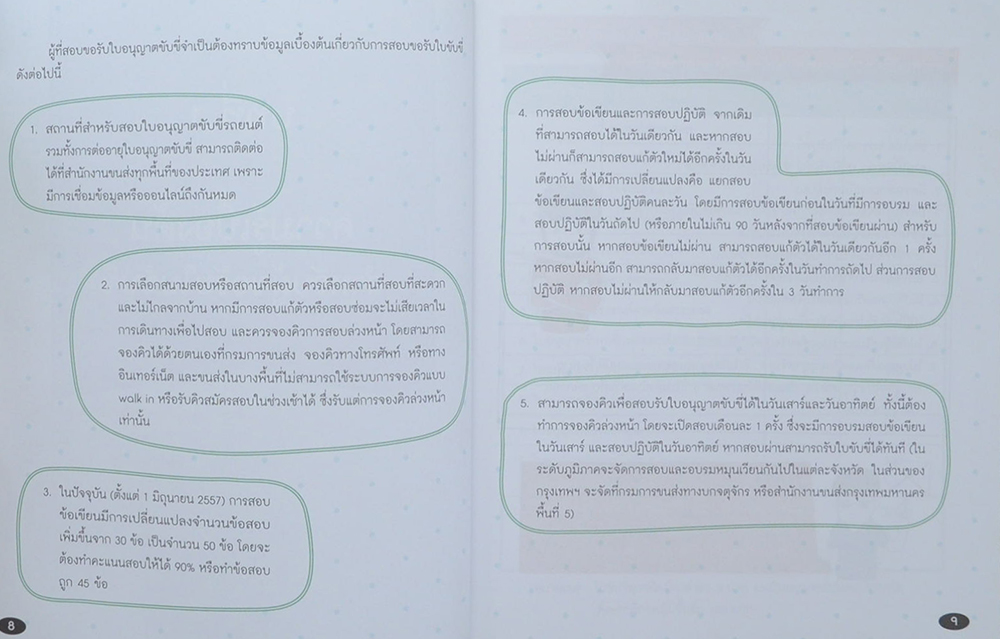 ผู้ที่สอบขอรับใบอนุญาตขับขี่จำเป็นต้องทราบข้อมูลเบื้องต้นเกี่ยวกับการสอบขอรับใบขับขี่
ดังต่อไปนี้
1. สถานที่สำหรับสอบใบอนุญาตขับขี่รถยนต์
รวมทั้งการต่ออายุใบอนุญาตขับขี่ สามารถติดต่อ
ได้ที่สำนักงานขนส่งทุกพื้นที่ของประเทศ เพราะ
มีการเชื่อมข้อมูลหรือออนไลน์ถึงกันหมด
2. การเลือกสนามสอบหรือสถานที่สอบ ควรเลือกสถานที่สอบที่สะดวก
และไม่ไกลจากบ้าน หากมีการสอบแก้ตัวหรือสอบซ่อมจะไม่เสียเวลาใน
การเดินทางเพื่อไปสอบ และควรจองคิวการสอบล่วงหน้า โดยสามารถ
จองคิวได้ด้วยตนเองที่กรมการขนส่ง จองคิวทางโทรศัพท์ หรือทาง
อินเทอร์เน็ต และขนส่งในบางพื้นที่ไม่สามารถใช้ระบบการจองคิวแบบ
walk in หรือรับคิวสมัครสอบในช่วงเช้าได้ ซึ่งรับแต่การจองคิวล่วงหน้า
เท่านั้น
3. ในปัจจุบัน (ตั้งแต่ 1 มิถุนายน 2557) การสอบ
ข้อเขียนมีการเปลี่ยนแปลงจำนวนข้อสอบ
เพิ่มขึ้นจาก 30 ข้อ เป็นจำนวน 50 ข้อ โดยจะ
ต้องทำคะแนนสอบให้ได้ 90% หรือทำข้อสอบ
ถูก 45 ข้อ
8
4. การสอบข้อเขียนและการสอบปฏิบัติ จากเดิม
ที่สามารถสอบได้ในวันเดียวกัน และหากสอบ
ไม่ผ่านก็สามารถสอบแก้ตัวใหม่ได้อีกครั้งในวัน
เดียวกัน ซึ่งได้มีการเปลี่ยนแปลงคือ แยกสอบ
ข้อเขียนและสอบปฏิบัติคนละวัน โดยมีการสอบข้อเขียนก่อนในวันที่มีการอบรม และ
สอบปฏิบัติในวันถัดไป (หรือภายในไม่เกิน 90 วันหลังจากที่สอบข้อเขียนผ่าน) สำหรับ
การสอบนั้น หากสอบข้อเขียนไม่ผ่าน สามารถสอบแก้ตัวได้ในวันเดียวกันอีก 1 ครั้ง
หากสอบไม่ผ่านอีก สามารถกลับมาสอบแก้ตัวได้อีกครั้งในวันทำการถัดไป ส่วนการสอบ
ปฏิบัติ หากสอบไม่ผ่านให้กลับมาสอบแก้ตัวอีกครั้งใน 3 วันทำการ
5. สามารถจองคิวเพื่อสอบรับใบอนุญาตขับขี่ได้ในวันเสาร์และวันอาทิตย์ ทั้งนี้ต้อง
ทำการจองคิวล่วงหน้า โดยจะเปิดสอบเดือนละ 1 ครั้ง ซึ่งจะมีการอบรมสอบข้อเขียน
ในวันเสาร์ และสอบปฏิบัติในวันอาทิตย์ หากสอบผ่านสามารถรับใบขับขี่ได้ทันที (ใน
ระดับภูมิภาคจะจัดการสอบและอบรมหมุนเวียนกันไปในแต่ละจังหวัด ในส่วนของ
กรุงเทพฯ จะจัดที่กรมการขนส่งทางบกจตุจักร หรือสำนักงานขนส่งกรุงเทพมหานคร
พื้นที่ 5)
๑